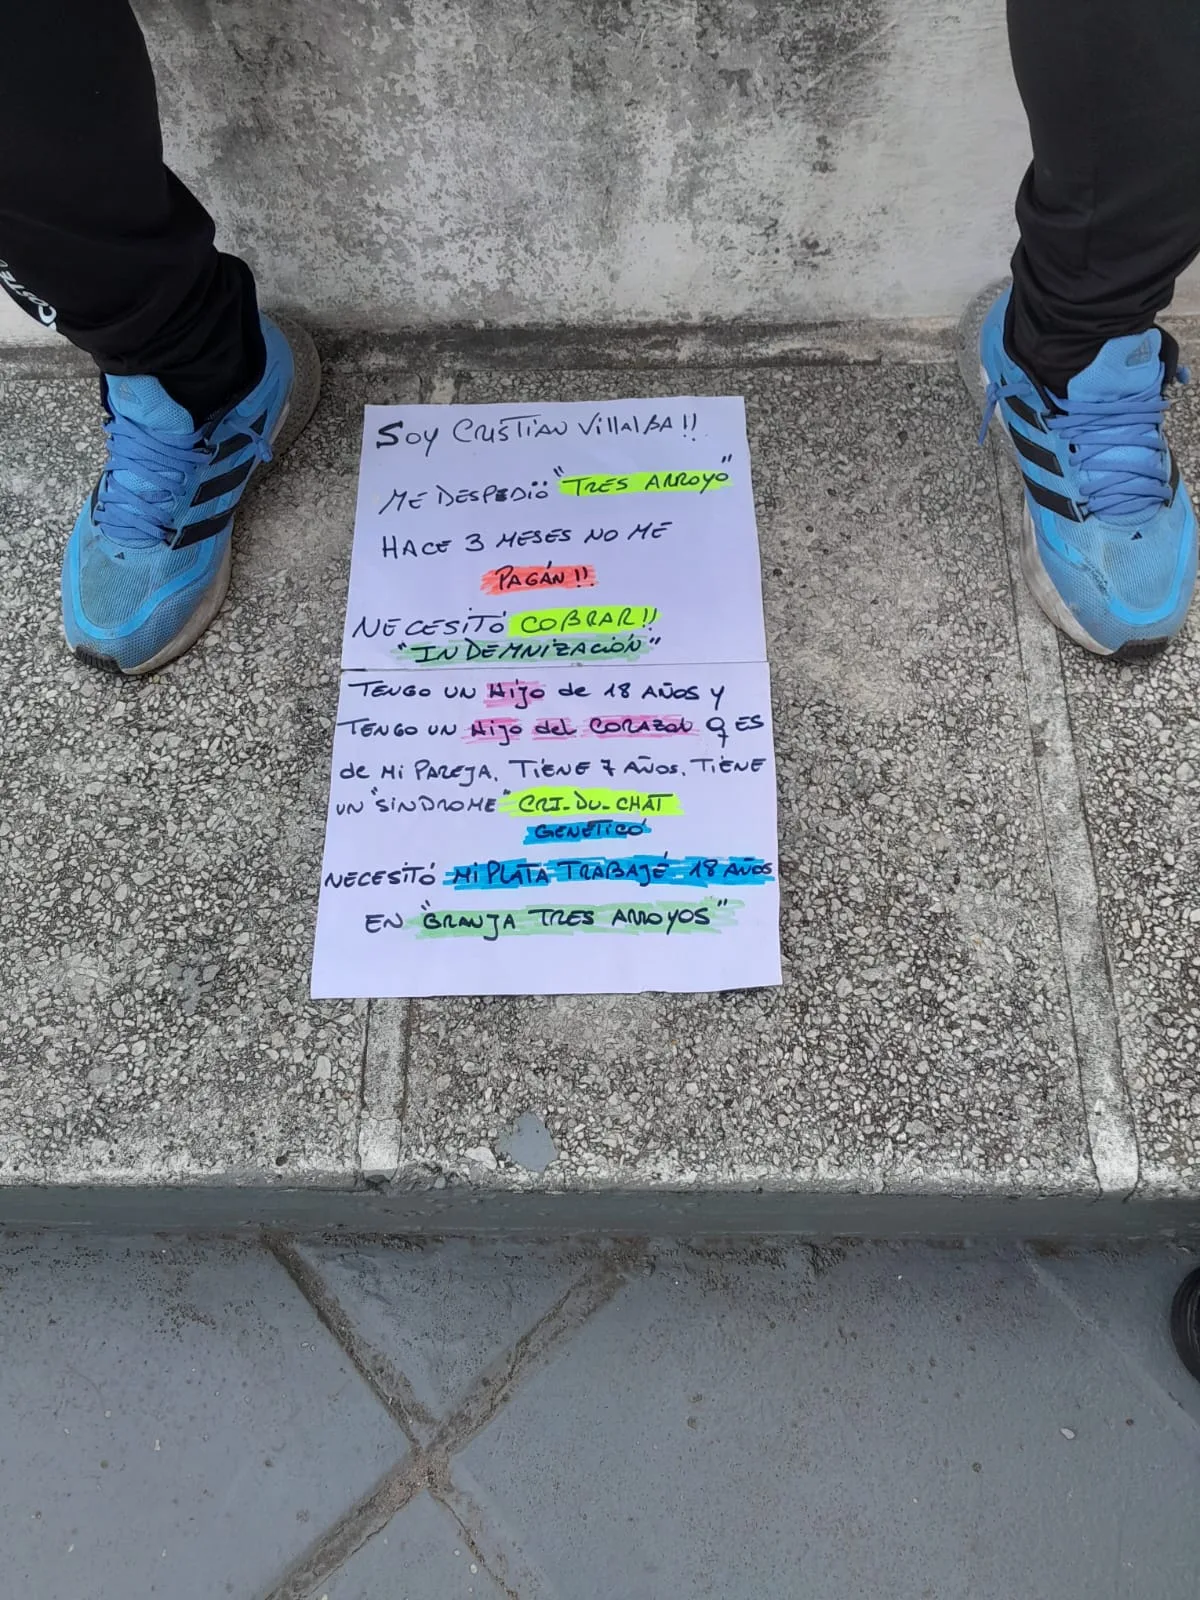 SOY CRISTIAN VillALBA!!
ME DESPEDIÓ "TRES ARROYO"
HACE 3 MESES NO ME
PAGÁN!!
NECESITÓ COBRAR!!
"INDEMNIZACIÓN"
TENGO UN Hijo de 18 AÑOS y
TENGO UN Hijo del CORAZON Q ES
de Mi PAREJA. TIENE 7 AÑOS. TIENE
UN "SINDROME" CRI-DU-CHAT
GENÉTICÓ
NECESITÓ Mi PLATA TRABAJÉ 18 AÑOS
EN "GRANJA TRES ARROYOS"